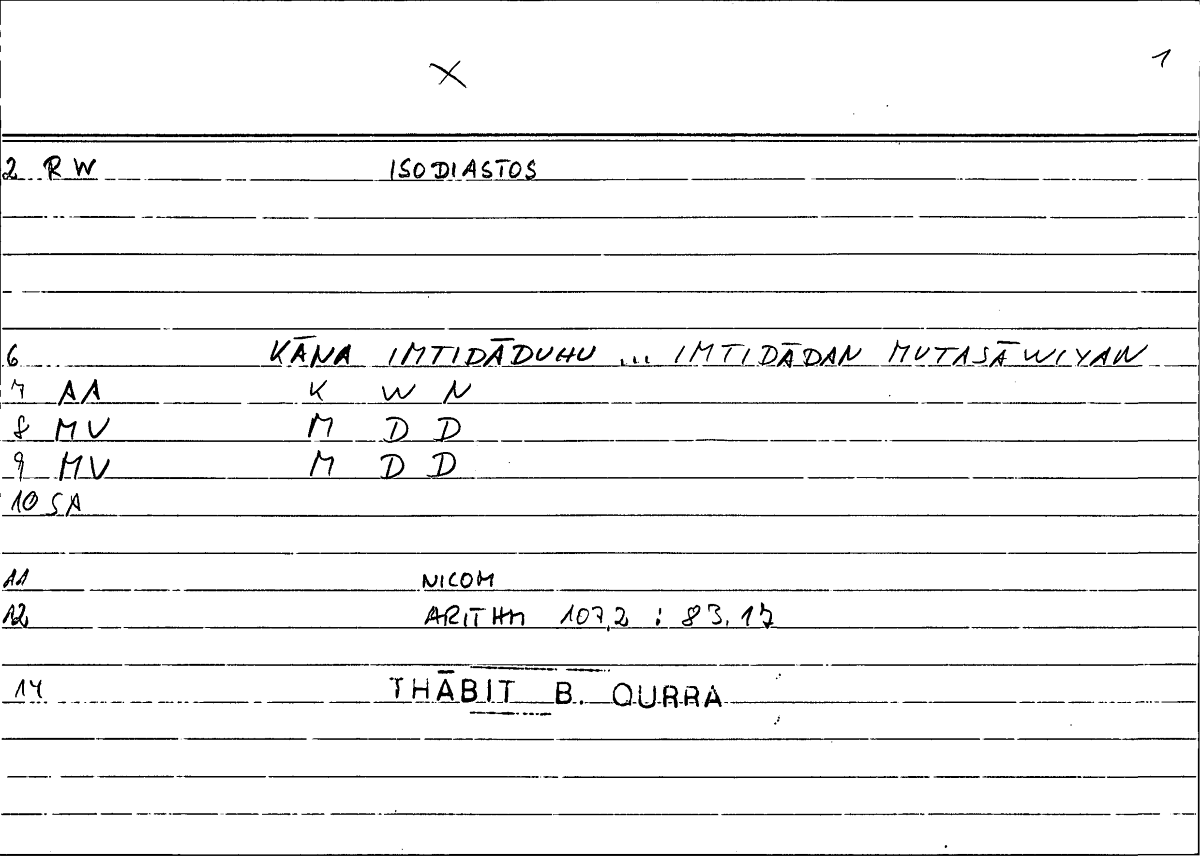 X 1
2 RW ISODIASTOS
6 KĀNA IMTIDĀDUHU ... IMTIDĀDAN MUTASĀWIYAN
7 AA K W N
8 MV M D D
9 MV M D D
10 SA
11 NICOM
12 ARITHM 107,2 : 83.17
14 THĀBIT B. QURRA